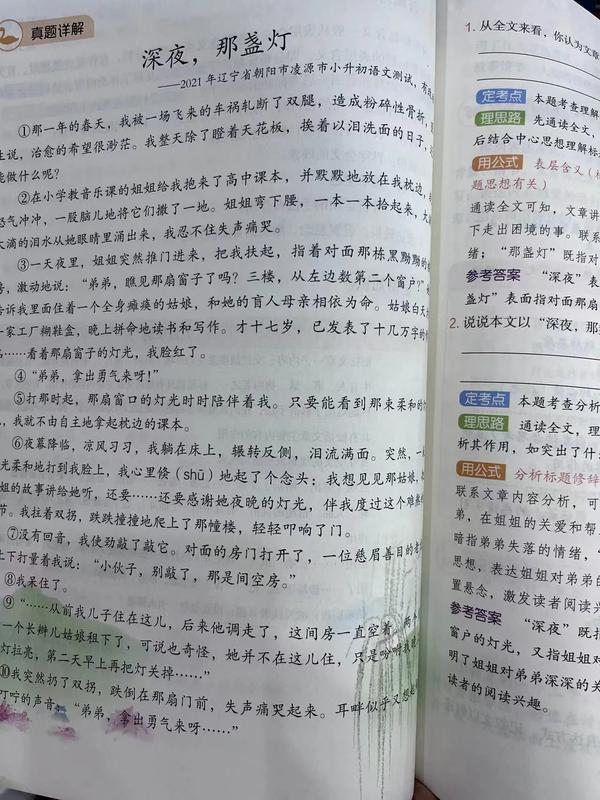 真题详解
深夜，那盏灯
——2021年辽宁省朝阳市凌源市小升初语文测试，有
①那一年的春天，我被一场飞来的车祸轧断了双腿，造成粉碎性骨折，
生说，治愈的希望很渺茫。我整天除了瞪着天花板，挨着以泪洗面的日子，
能做什么呢？
②在小学教音乐课的姐姐给我抱来了高中课本，并默默地放在我枕边，
怒气冲冲，一股脑儿地将它们撒了一地。姐姐弯下腰，一本一本拾起来，大
大滴的泪水从她眼睛里涌出来，我忍不住失声痛哭。
③一天夜里，姐姐突然推门进来，把我扶起，指着对面那栋黑黝黝的
房，激动地说：“弟弟，瞧见那扇窗子了吗？三楼，从左边数第二个窗户”
告诉我里面住着一个全身瘫痪的姑娘，和她的盲人母亲相依为命。姑娘白天
一家工厂糊鞋盒，晚上拼命地读书和写作。才十七岁，已发表了十几万字的
……看着那扇窗子的灯光，我脸红了。
④“弟弟，拿出勇气来呀！”
⑤打那时起，那扇窗口的灯光时时陪伴着我。只要能看到那束柔和的
，我就不由自主地拿起枕边的课本。
⑥夜幕降临，凉风习习，我躺在床上，辗转反侧，泪流满面。突然，
光柔和地打到我脸上，我心里倏（shū）地起了个念头：我想见见那姑娘，
姐的故事讲给她听，还要……还要感谢她夜晚的灯光，伴我度过这个难熬
节。我拄着双拐，跌跌撞撞地爬上了那幢楼，轻轻叩响了门。
⑦没有回音，我使劲敲了敲它。对面的房门打开了，一位慈眉善目的老
上下打量着我说：“小伙子，别敲了，那是间空房。”
⑧我呆住了。
⑨“……从前我儿子住在这儿，后来他调走了，这间房一直空着。两个
一个长辫儿姑娘租下了，可说也奇怪，她并不在这儿住，只是吩咐我
灯拉亮，第二天早上再把灯关掉……”
⑩我突然扔了双拐，跌倒在那扇门前，失声痛哭起来。耳畔似乎又想起
叮咛的声音：“弟弟，拿出勇气来呀……”
1. 从全文来看，你认为文章
定考点 本题考查理解
理思路 先通读全文，
后结合中心思想理解标
用公式 表层含义（
题思想有关）
通读全文可知，文章讲
下走出困境的事。联系
绪；“那盏灯”既指对
参考答案 “深夜”表
盏灯”表面指对面那扇
2. 说说本文以“深夜，那
定考点 本题考查分析
理思路 通读全文，理
析其作用，如突出了什
用公式 分析标题修辞
联系文章内容分析，可
弟，在姐姐的关爱和帮
暗指弟弟失落的情绪，“
思想，表达姐姐对弟弟的
置悬念，激发读者阅读兴
参考答案 “深夜”既指
窗户的灯光，又指姐姐对
明了姐姐对弟弟深深的关
读者的阅读兴趣。